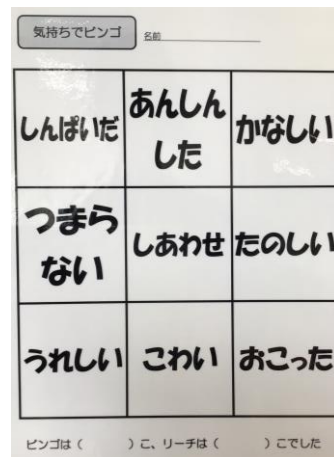 気持ちでビンゴ
名前
しんぱいだ
あんしん
した
かなしい
つまら
ない
しあわせ
たのしい
うれしい
こわい
おこった
ビンゴは（　　）こ、リーチは（　　）こでした